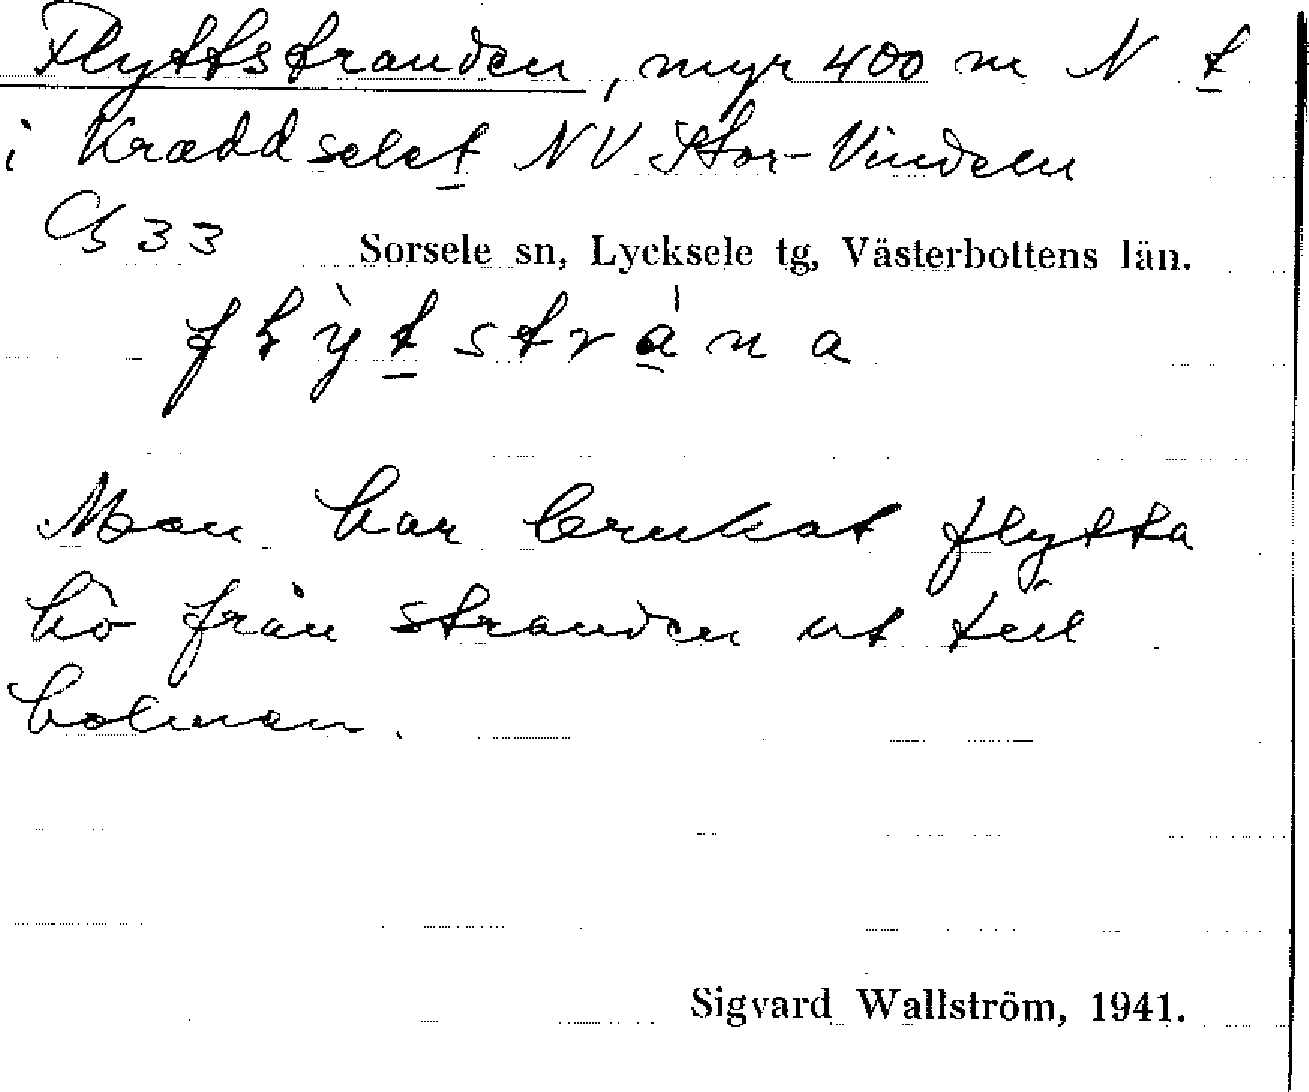 Flyttstranden, myr 400 m N t
i Kraddselet NV Stor-Vindeln
G 33
Sorsele sn, Lycksele tg, Västerbottens län.
Man har brukat flytta
hö från stranden ut till
holmen.
Sigvard Wallström, 1941.